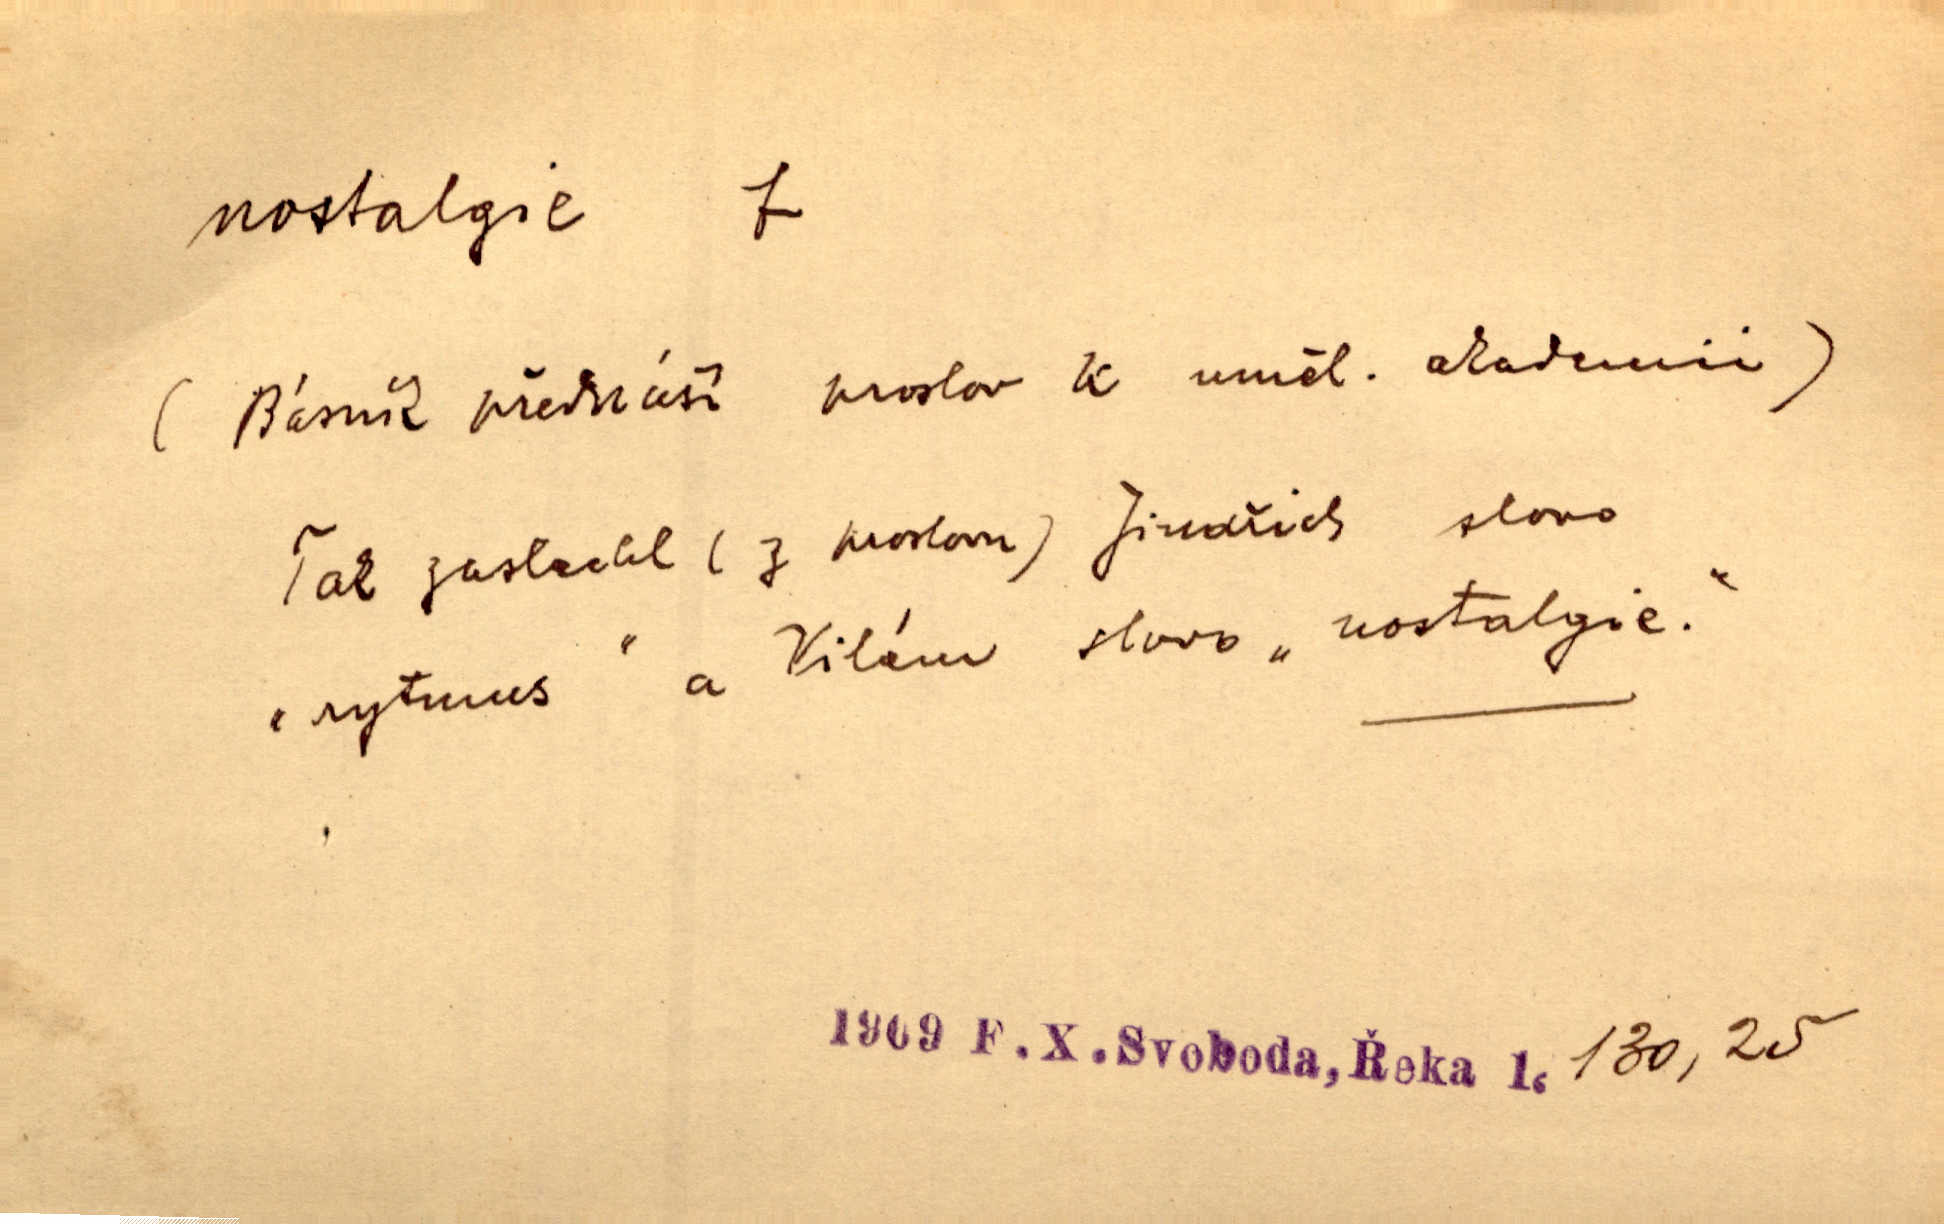 nostalgie f
(Básník přednáší proslov k uměl. akademii)
Tak zaslechl (z proslovu) Jindřich slovo
„rytmus“ a Vilém slovo „nostalgie.“
1909 F.X.Svoboda, Řeka 1. 130, 25